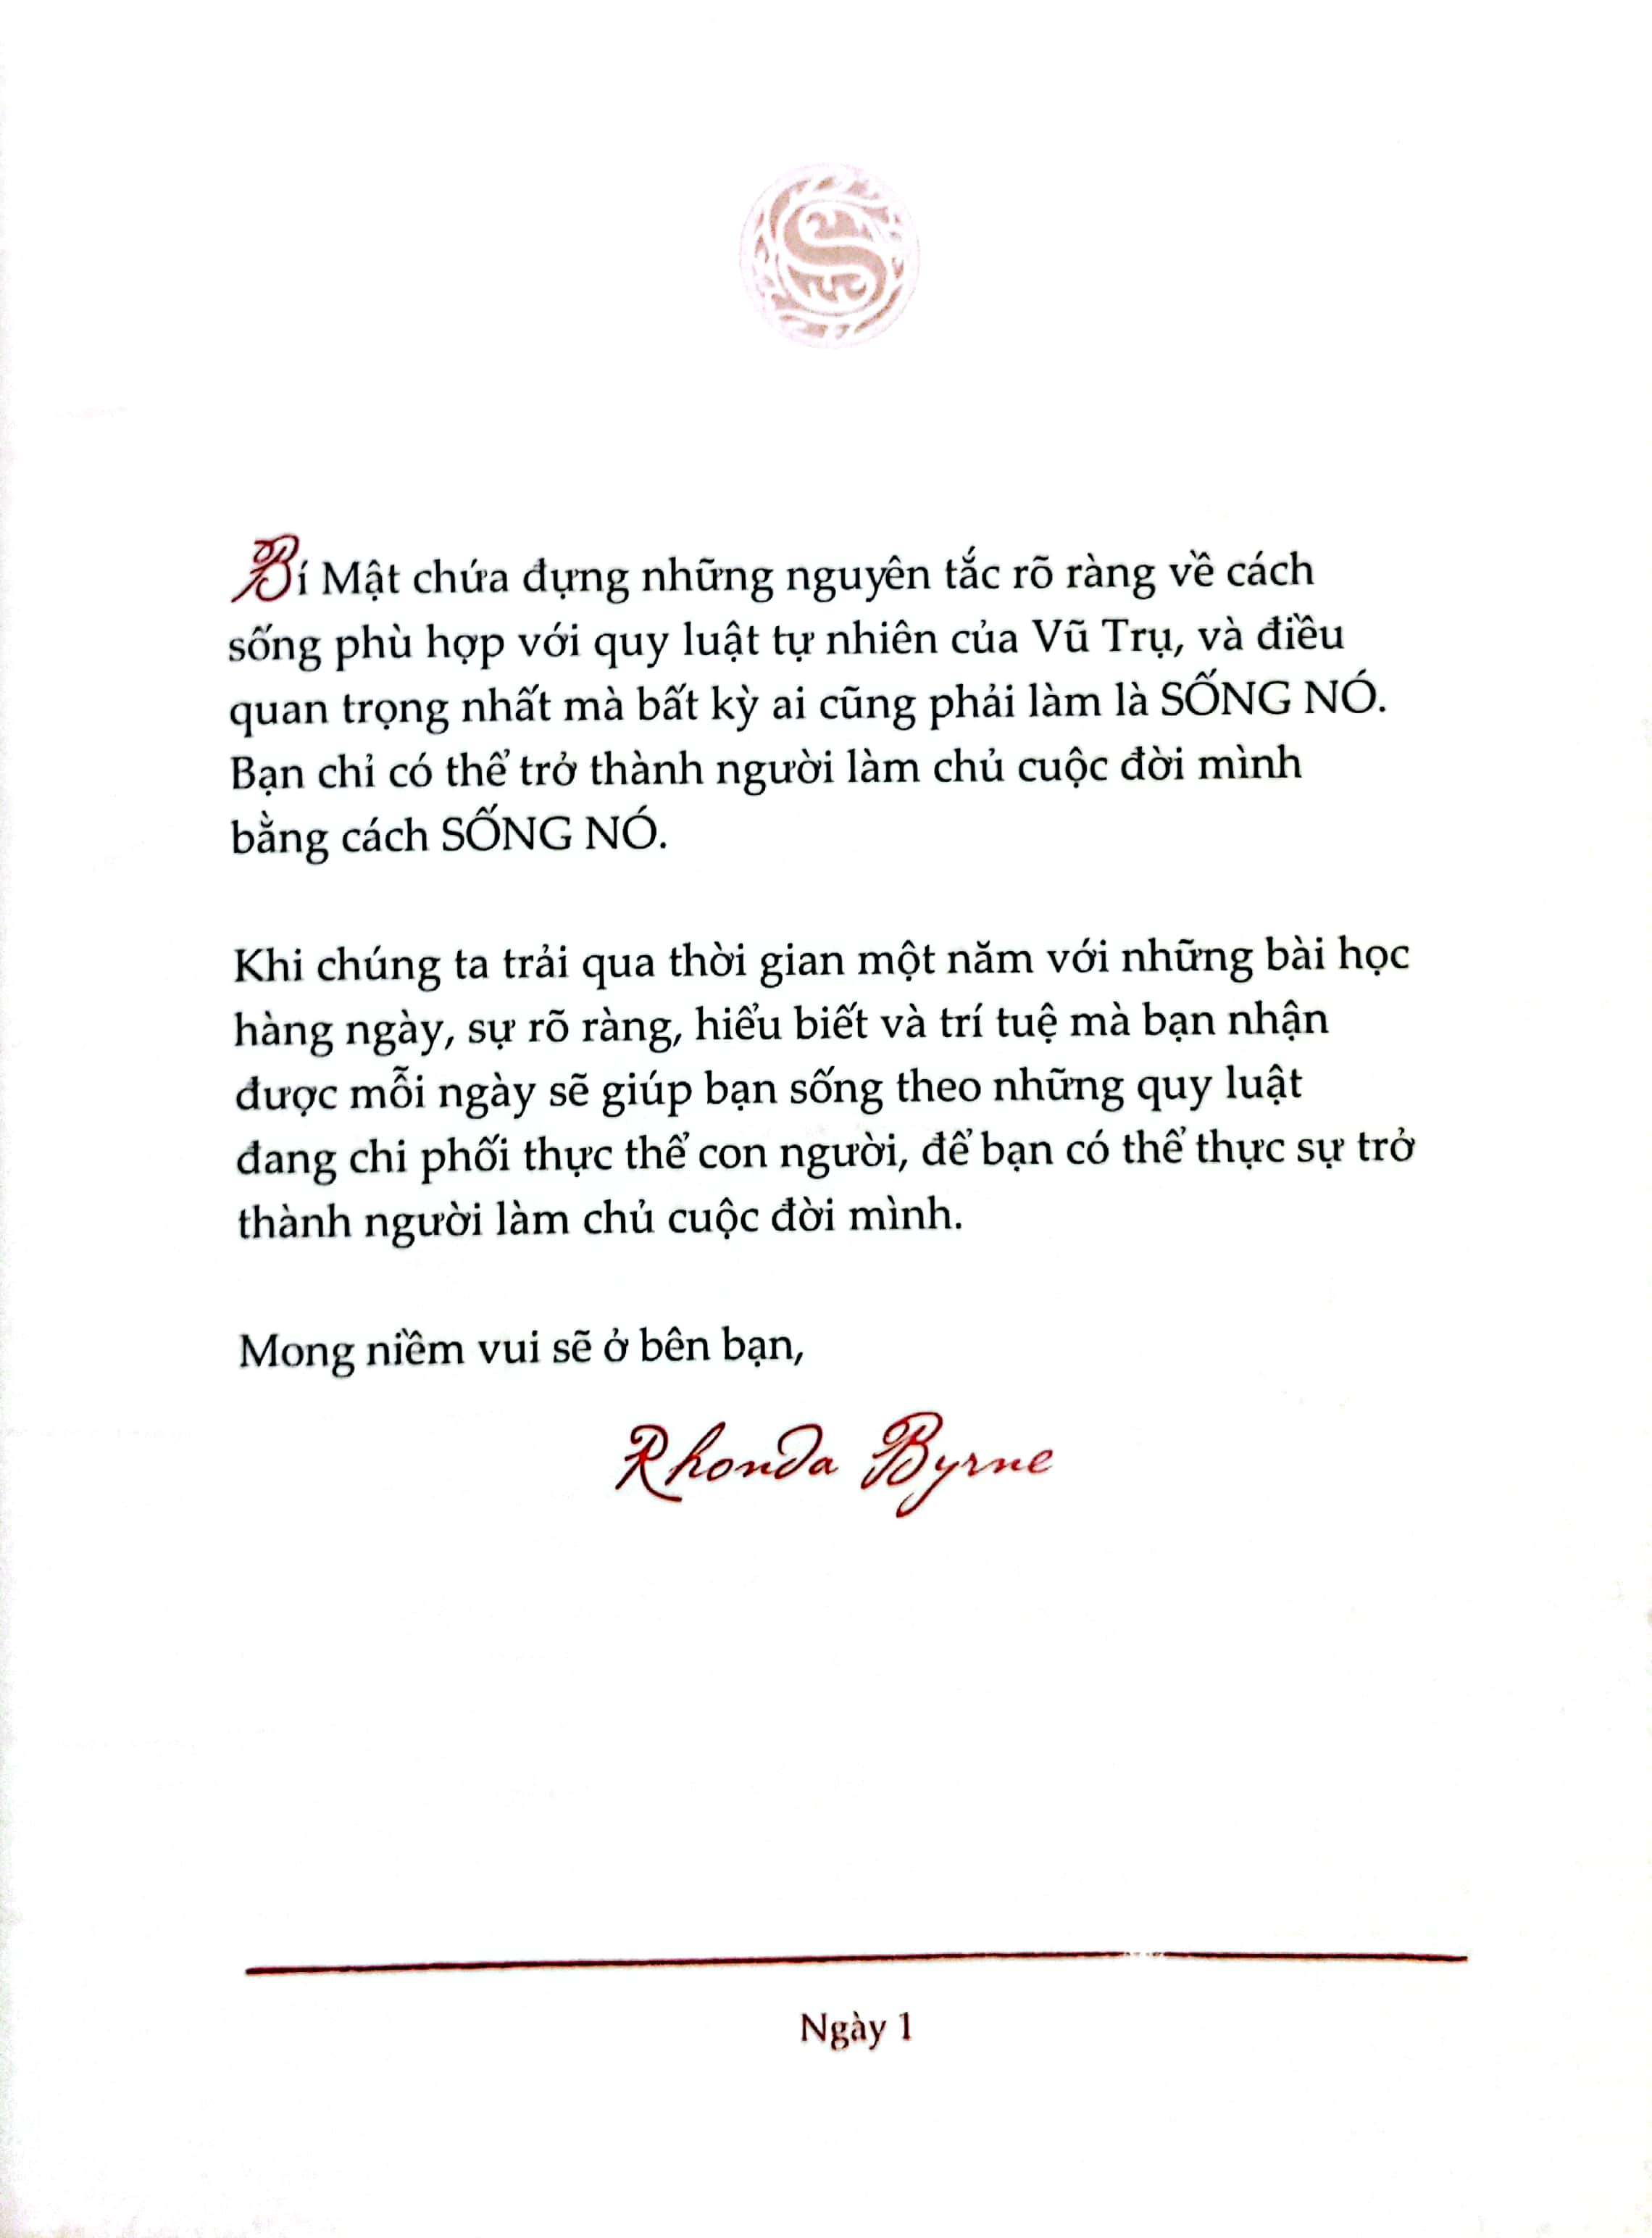 Bí Mật chứa đựng những nguyên tắc rõ ràng về cách
sống phù hợp với quy luật tự nhiên của Vũ Trụ, và điều
quan trọng nhất mà bất kỳ ai cũng phải làm là SỐNG NÓ.
Bạn chỉ có thể trở thành người làm chủ cuộc đời mình
bằng cách SỐNG NÓ.
Khi chúng ta trải qua thời gian một năm với những bài học
hàng ngày, sự rõ ràng, hiểu biết và trí tuệ mà bạn nhận
được mỗi ngày sẽ giúp bạn sống theo những quy luật
đang chi phối thực thể con người, để bạn có thể thực sự trở
thành người làm chủ cuộc đời mình.
Mong niềm vui sẽ ở bên bạn,
Rhonda Byrne
Ngày 1